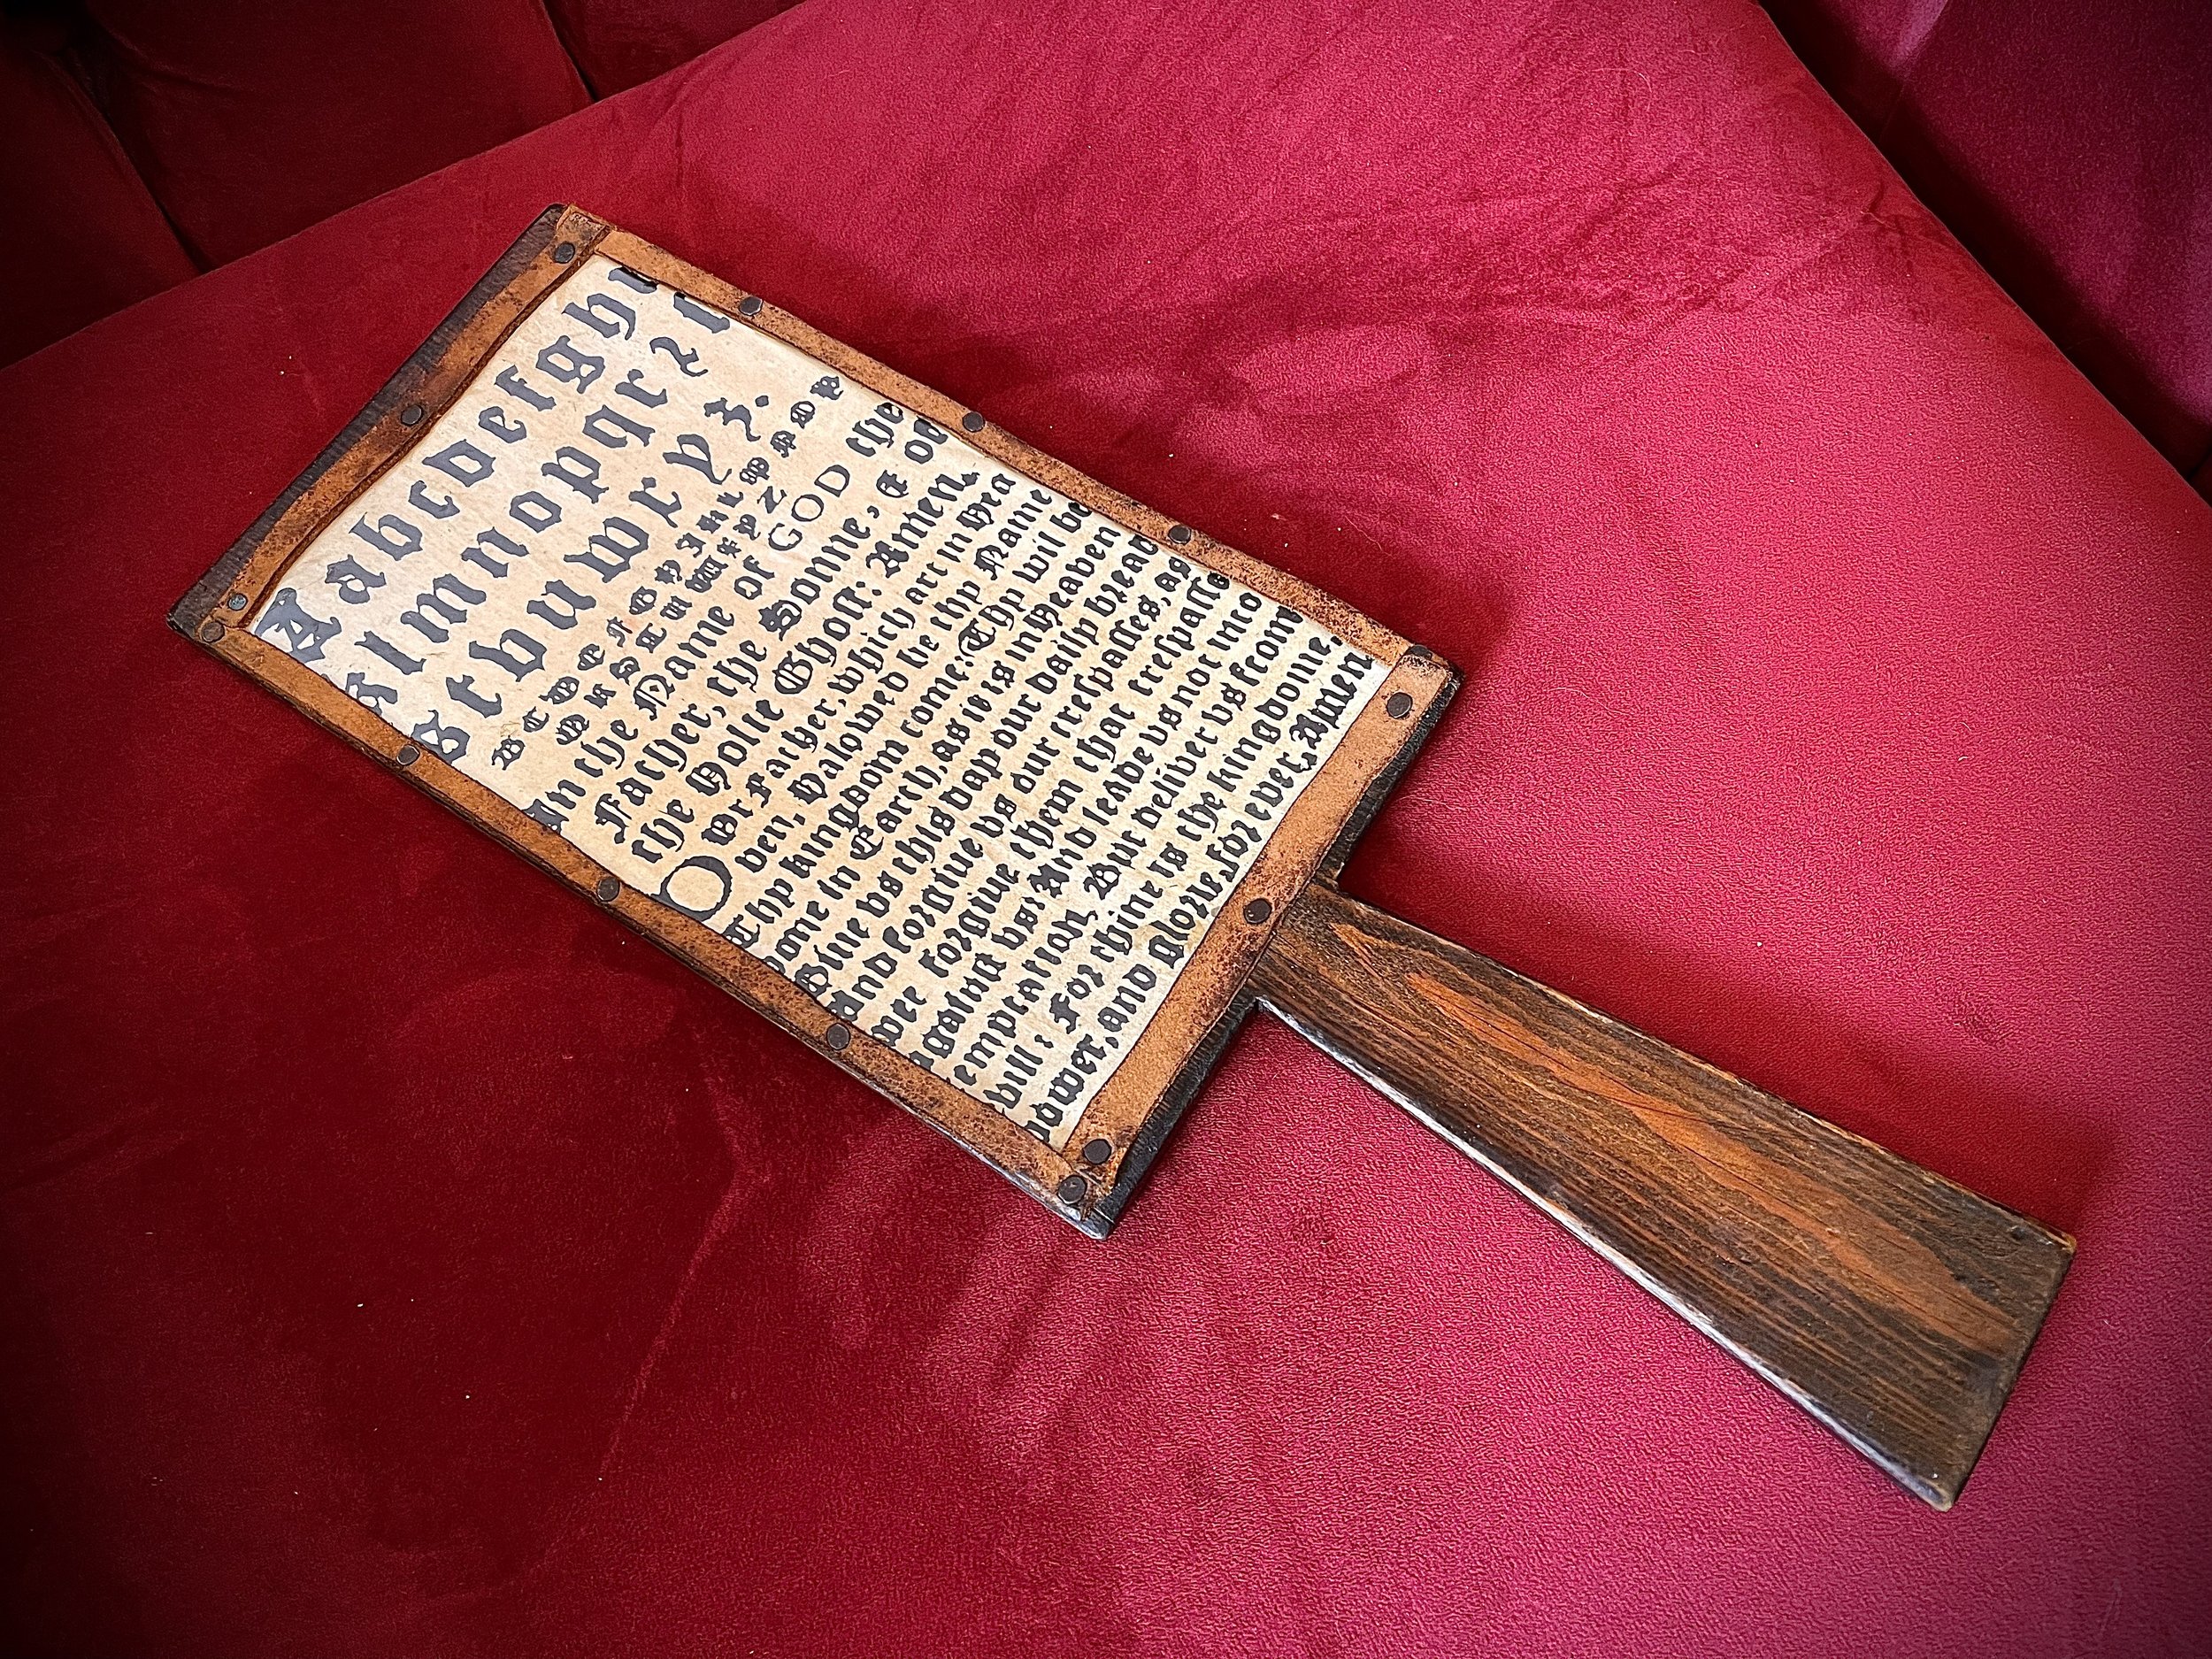 A a b c d e f g h i
k l m n o p q r ꝛ ſ
s t v u w x y z.
B C D E F G H I K L M N O P
Q R S T U W X Y Z
In the Name of GOD the
Father, the Sonne, & of
the Holie Ghoſt: Amen.
Owr Father, which art in Hea
ven, Halowed be thy Name
Thy kingdom come: Thy wil be
done in Earth, as it is in Heaven
Giue vs this day our daily bread
And forgiue vs our treſpaſſes, as
we forgiue them that treſpaſſe
againſt vs: And leade vs not into
temptation, But deliver vs from
evill: For thine is the kingdome,
power, and glorie, for ever, Amen.